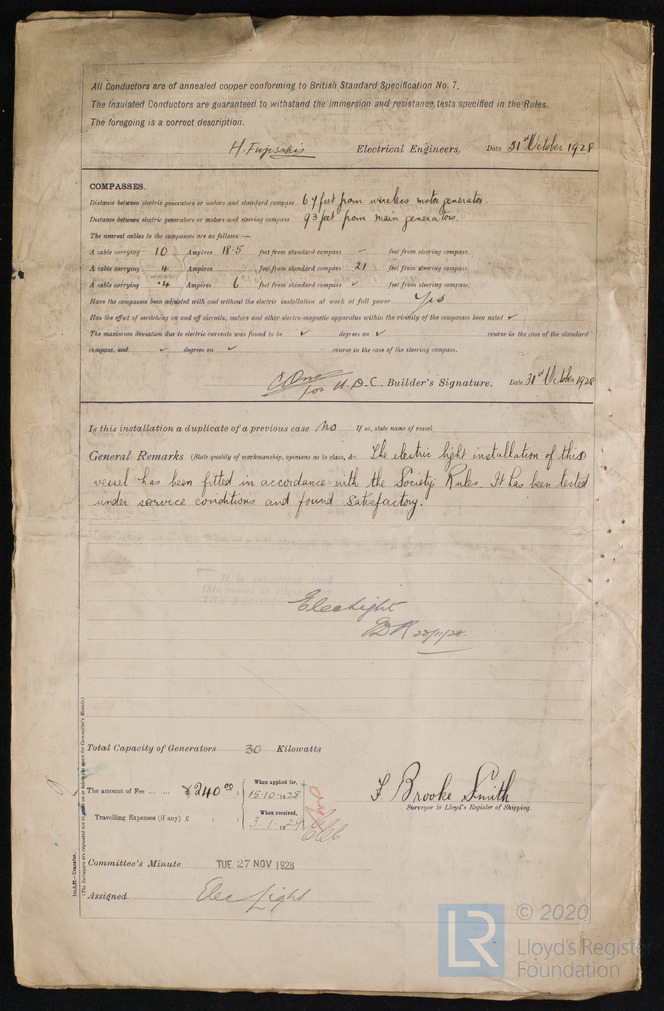 All Conductors are of annealed copper conforming to British Standard Specification No. 7.
The Insulated Conductors are guaranteed to withstand the immersion and resistance tests specified in the Rules.
The foregoing is a correct description.
H. Electrical Engineers. Date 31st October 1928
COMPASSES.
Distance between electric generators or motors and standard compass 64 feet from wireless motor generator.
Distance between electric generators or motors and steering compass 93 feet from main generators.
The nearest cables to the compasses are as follows:—
A cable carrying 10 Ampères 18.5 feet from standard compass ✓ feet from steering compass.
A cable carrying 4 Ampères feet from standard compass 21 feet from steering compass.
A cable carrying .4 Ampères 6 feet from standard compass ✓ feet from steering compass.
Have the compasses been adjusted with and without the electric installation at work at full power Yes
Has the effect of switching on and off circuits, motors and other electro-magnetic apparatus within the vicinity of the compasses been noted ✓
The maximum deviation due to electric currents was found to be ✓ degrees on ✓ course in the case of the standard
compass, and ✓ degrees on ✓ course in the case of the steering compass.
for U.D.C. Builder's Signature. Date 31st October 1928
Is this installation a duplicate of a previous case no If so, state name of vessel
General Remarks (State quality of workmanship, opinions as to class, &c. The electric light installation of this
vessel has been fitted in accordance with the Society's Rules. It has been tested
under service conditions and found satisfactory.
Elec Light
22/11/28
Total Capacity of Generators 30 Kilowatts
The amount of Fee ... ... ¥240 00 : When applied for, 15-10-1928
F. Brooke Smith
Surveyor to Lloyd's Register of Shipping.
Travelling Expenses (if any) £ : : When received, 3-1-1929
Committee's Minute TUE 27 NOV 1928
Assigned Elec Light
LR © 2020
Lloyd's Register
Foundation